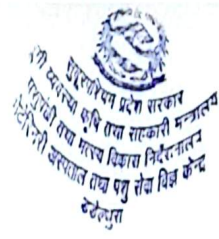 सुदूरपश्चिम प्रदेश सरकार
भूमी व्यवस्था कृषि तथा सहकारी मन्त्रालय
पशुपंछी तथा मत्स्य विकास निर्देशनालय
भेटेरिनरी अस्पताल तथा पशु सेवा विज्ञ केन्द्र
डडेल्धुरा